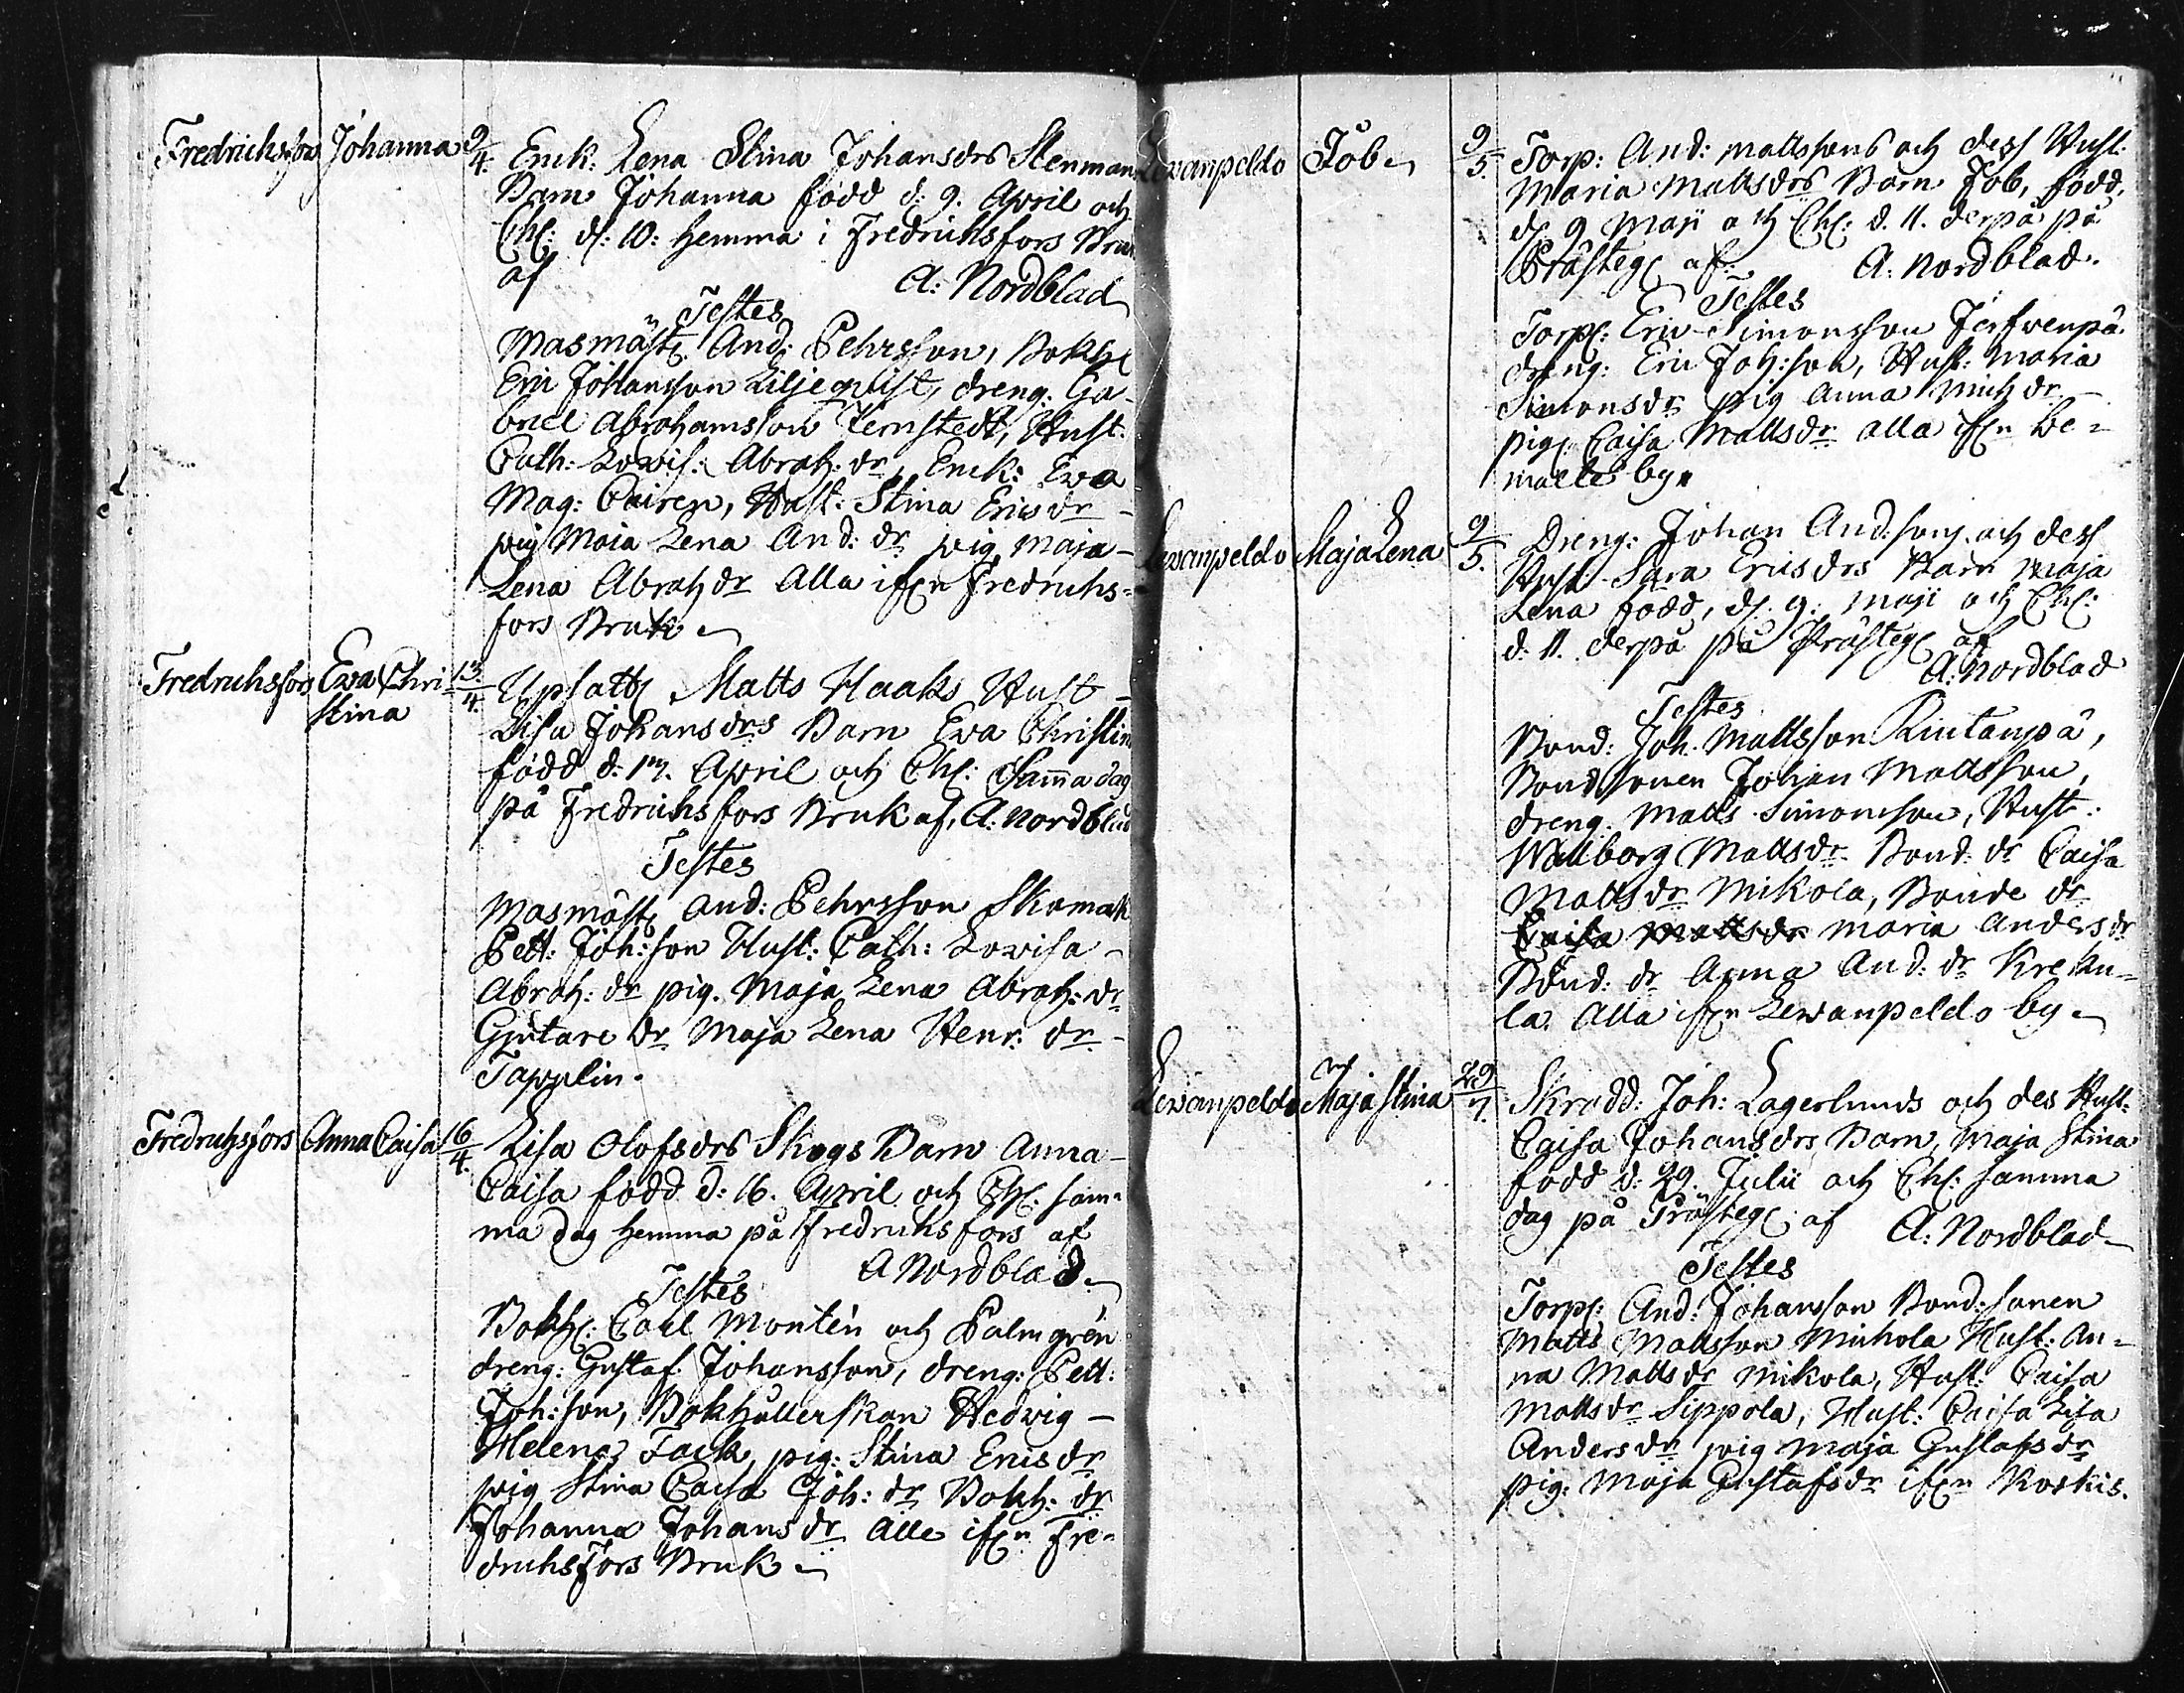 Fredrichsfors Johanna 9/4. Enck: Lena Stina Johansdrs Stenmans
Barn Johanna född d: 9. April och
Chr: d: 10: hemma i Fredrichsfors Bruk
af A: Nordblad
Testes
Masmäst: And: Pehrsson, Bokh:
Eric Johansson Liljeqvist, dreng: Ga-
briel Abrahamsson Jernstedt, Hust:
Cath: Lovis: Abrah: dr, Enck: Eva
Mag: Cairen, Hust: Stina Ericsdr
pig Maja Lena And: dr pig Maja
Lena Abrah dr Alla ifrn Fredrichs-
fors Bruk
Fredrichsfors Eva Chri- 13/4. Uplatt: Matts Haaks Hust
stina Lisa Johansdrs Barn Eva Christin
född d: 13. April och Chr: Samma dag
på Fredrichsfors Bruk af, A: Nordblad
Testes
Masmäst: And: Pehrsson Skomak
Pett: Joh:son Hust: Cath: Lovisa
Abrah: dr pig. Maja Lena Abrah: dr
Gjutare dr Maja Lena Henr: dr
Tapplin.
Fredrichsfors Anna Caisa 16/4. Lisa Olofsdrs Skogs Barn Anna
Caisa född d: 16. April och Chr. sam-
ma dag hemma på Fredrichsfors af
A Nordblad.
Testes
Bokh: Carl Montén och Palmgrén
dreng: Gustaf Johansson, dreng: Pett:
Joh:son, Bokhållerskan Hedvig
Helena Fack, pig: Stina Ericsdr
pig Stina Caisa Joh: dr Bokh: dr
Johanna Johansdr Alle ifrn Fre-
drichsfors Bruk
Levanpeldo Job 9/5. Torp: And: Mattssons och dess Hust:
Maria Mattsdrs Barn Job, född
d: 9 Maji och Chr: d. 11. derpå på
Prästeg: af A: Nordblad.
Testes
Torp: Eric Simonsson Jerfvenpä
dreng: Eric Joh:son, Hust: Maria
Simonsdr pig Anna Mich dr
pig: Caisa Mattsdr alla ifrn be-
mälte by
Levanpeldo Maja Lena 9/5. Dreng: Johan And:sons och dess
Hust Sara Ericsdrs Barn Maja
Lena född, d: 9: Maji och Chr:
d: 11. derpå på Prästeg: af
A: Nordblad
Testes
Bond: Joh. Mattsson Rintanpä,
Bondsonen Johan Mattsson,
dreng. Matts Simonsson, Hust:
Wallborg Mattsdr Bond: dr Caisa
Mattsdr Mikola, Bonde dr
Caisa Mattsdr Maria Andersdr
Bond: dr Anna And: dr Kreku-
la. Alla ifrn Levanpeldo by
Levanpeldo Maja Stina 29/7. Skrädd: Joh: Lagerlunds och des Hust:
Caisa Johansdrs Barn, Maja Stina
född d: 29. Julii och Chr: samma
dag på Prästeg: af A: Nordblad
Testes
Torp: And: Johansson Bond:sonen
Matts Mattsson Mickola Hust: An-
na Mattsdr Mikola, Hust: Caisa
Mattsdr Sippola, Hust: Caisa Lisa
Andersdr pig Maja Gustafsdr
pig: Maja Gustafsdr ifrn Koskis.